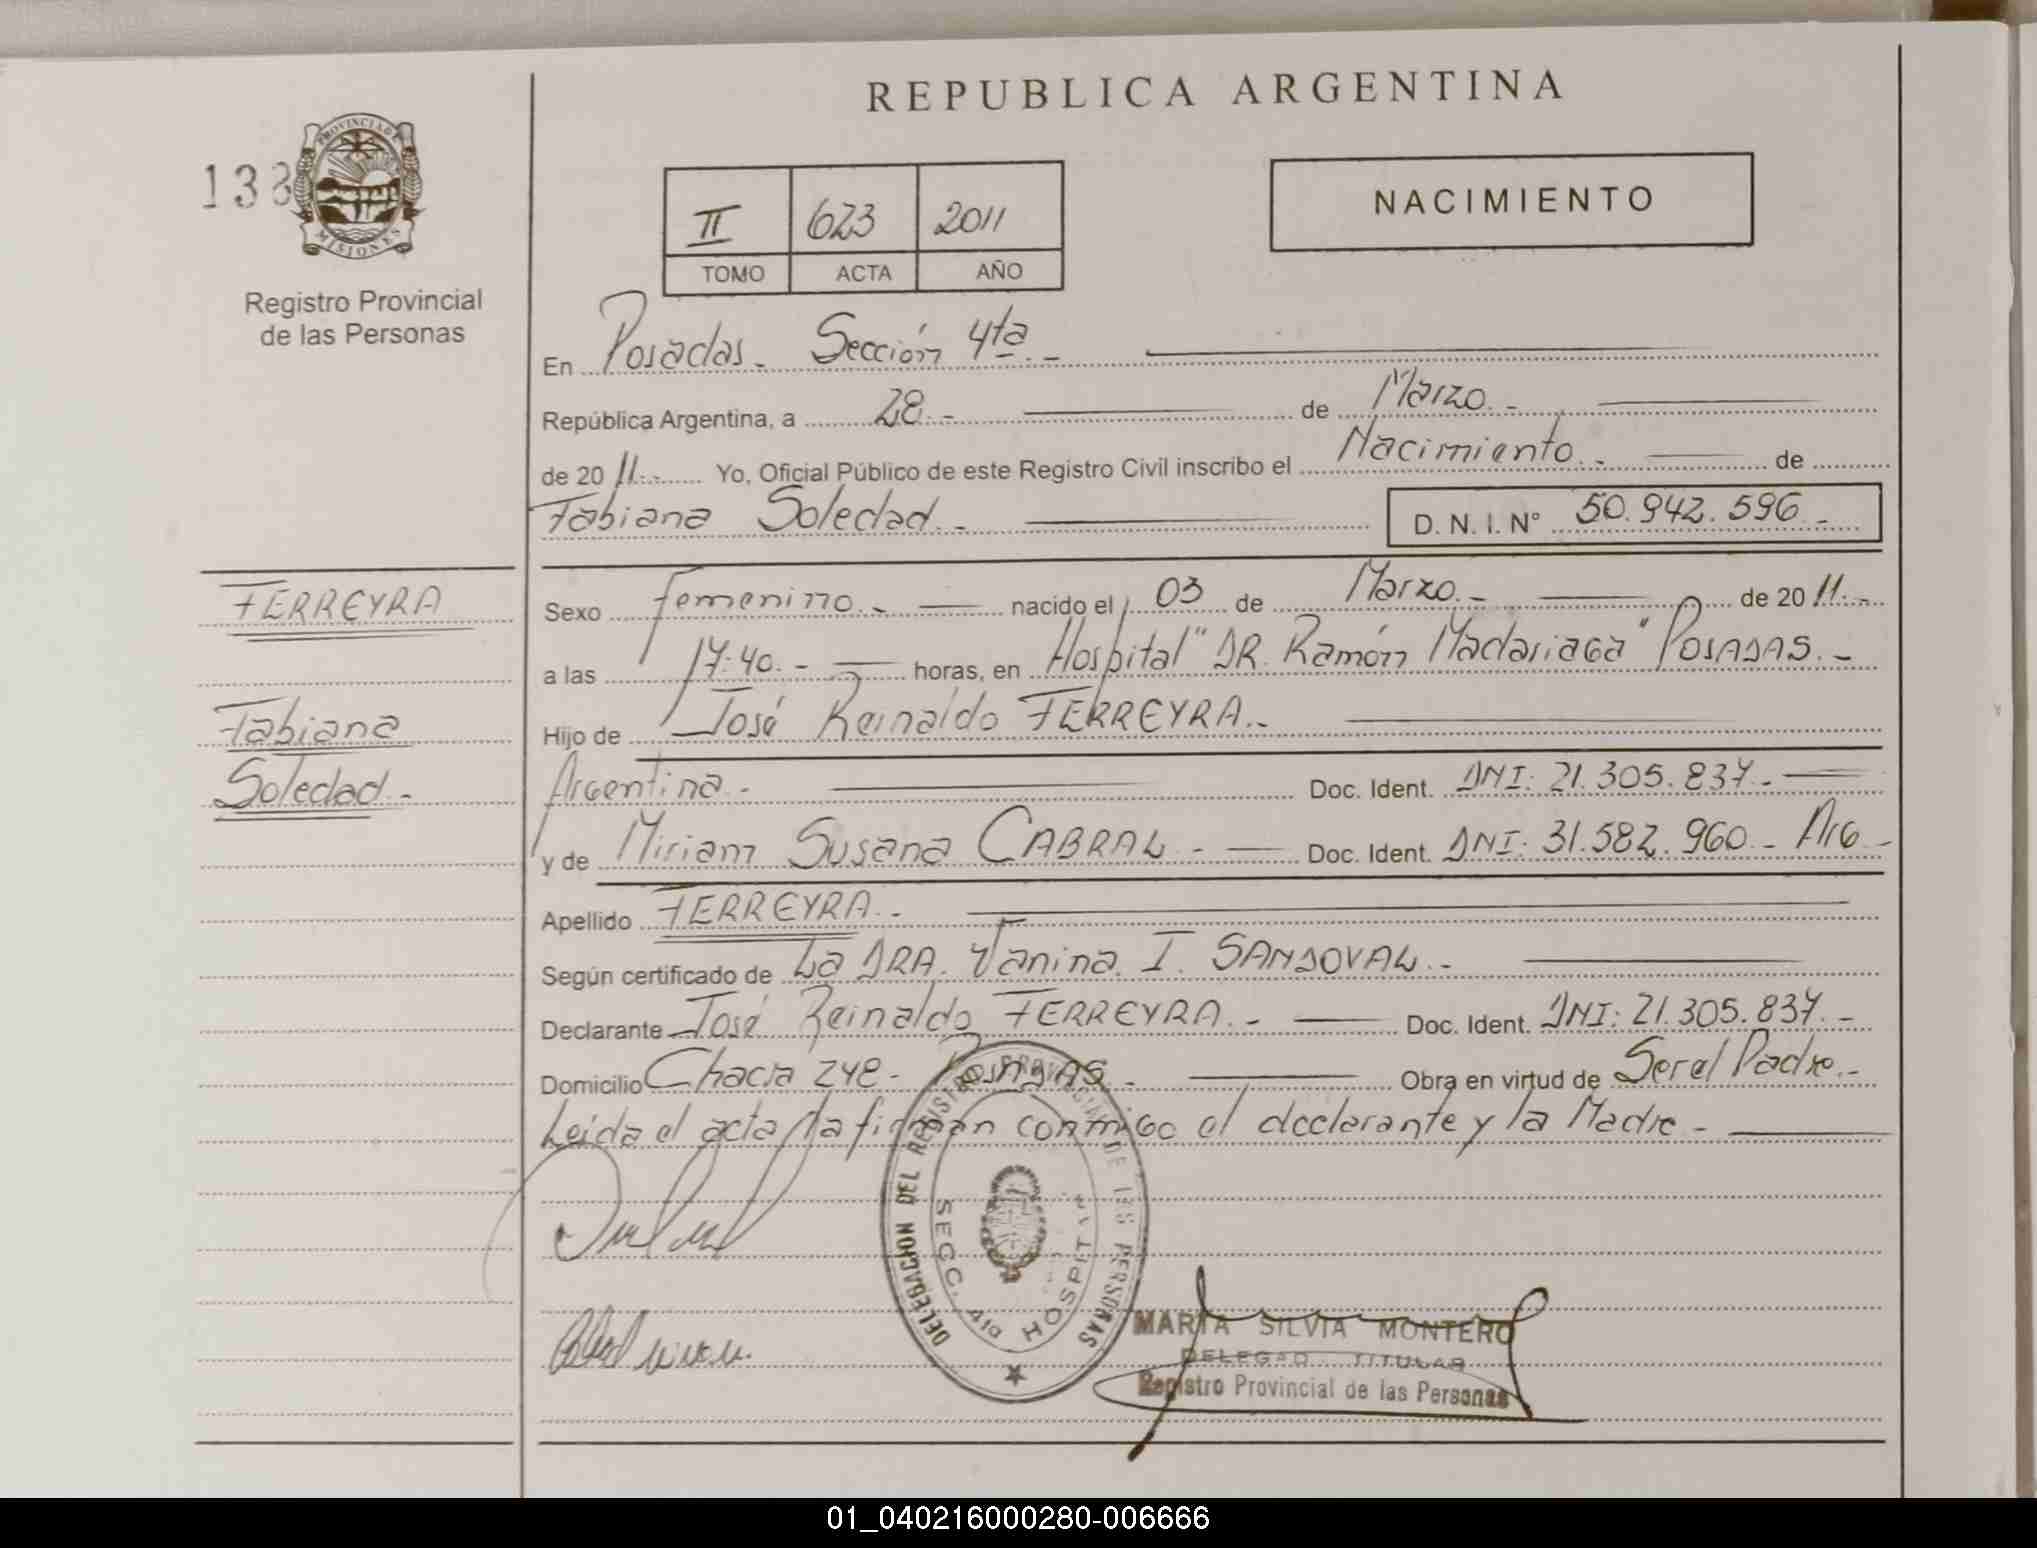 REPUBLICA ARGENTINA
138
PROVINCIA DE
MISIONES
Registro Provincial
de las Personas
II 623 2011
TOMO ACTA AÑO
NACIMIENTO
En Posadas.- Sección 4ta.-
República Argentina, a 28.- de Marzo.-
de 2011.- Yo, Oficial Público de este Registro Civil inscribo el Nacimiento.- de
Fabiana Soledad.- D. N. I. N° 50.942.596.-
FERREYRA
Fabiana
Soledad.-
Sexo femenino.- nacido el 03 de Marzo.- de 2011.-
a las 17:40.- horas, en Hospital "DR. Ramón Madariaga" POSADAS.-
Hijo de José Reinaldo FERREYRA.-
Argentina.- Doc. Ident. DNI: 21.305.837.-
y de Miriam Susana CABRAL.- Doc. Ident. DNI: 31.582.960.- Arg.-
Apellido FERREYRA.-
Según certificado de La DRA. Vanina I. SANDOVAL.-
Declarante José Reinaldo FERREYRA.- Doc. Ident. DNI: 21.305.837.-
Domicilio Chacra 248.- POSADAS.- Obra en virtud de Ser el Padre.-
Leida el acta la firman conmigo el declarante y la Madre.-
DELEGACION DEL REGISTRO PROVINCIAL DE LAS PERSONAS
SECC. 4ta HOSPITAL
MARTA SILVIA MONTERO
DELEGAD TITULAR
Registro Provincial de las Personas
01_040216000280-006666